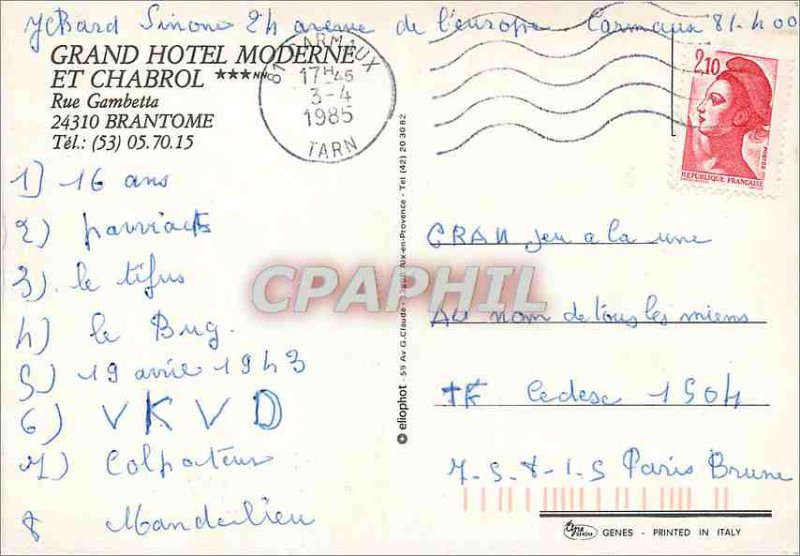 JC Bard Simone 24 avenue de l'europe Carmaux 81400
GRAND HOTEL MODERNE
ET CHABROL ***NN
Rue Gambetta
24310 BRANTOME
Tél.: (53) 05.70.15
81 CARMAUX
17H45
3-4
1985
TARN
2,10
POSTES
REPUBLIQUE FRANÇAISE
1) 16 ans
2)
3) le tifus
4) le Bug.
5) 19 avrie 1943
6) VKVD
7) Colpateur
8 Mandelieu
eliophot - 59 Av G. Claude - Aix-en-Provence - Tel (42) 20 30 82
GRAN jeu a la une
Au nom de tous les miens
TF Cedese 1504
75415 Paris Brune
CPAPHIL
GENES - PRINTED IN ITALY